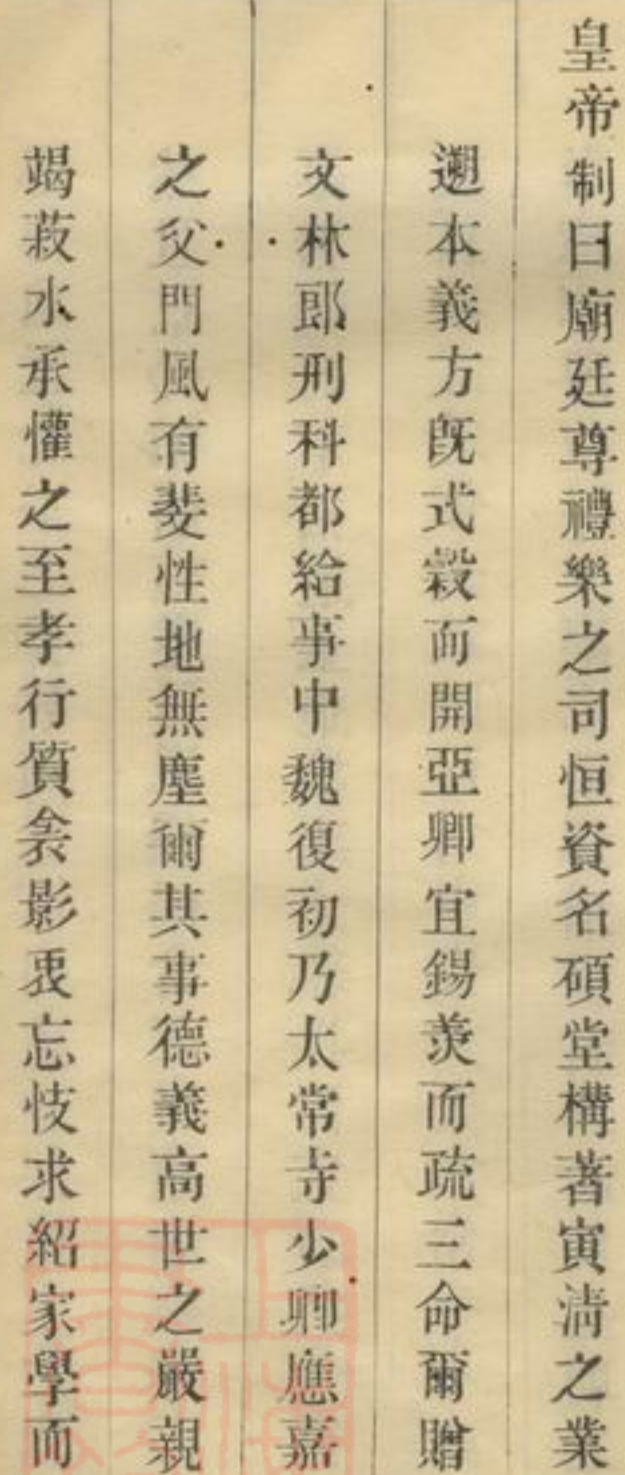 皇帝制曰廟廷尊禮樂之司恒資名碩堂構著寅清之業
遡本義方旣式榖而開亞卿宜錫羨而疏三命爾贈
文林郎刑科都給事中魏復初乃太常寺少卿應嘉
之父門風有斐性地無塵爾其事德義高世之嚴親
竭菽水承懽之至孝行質衾影衷忘忮求紹家學而